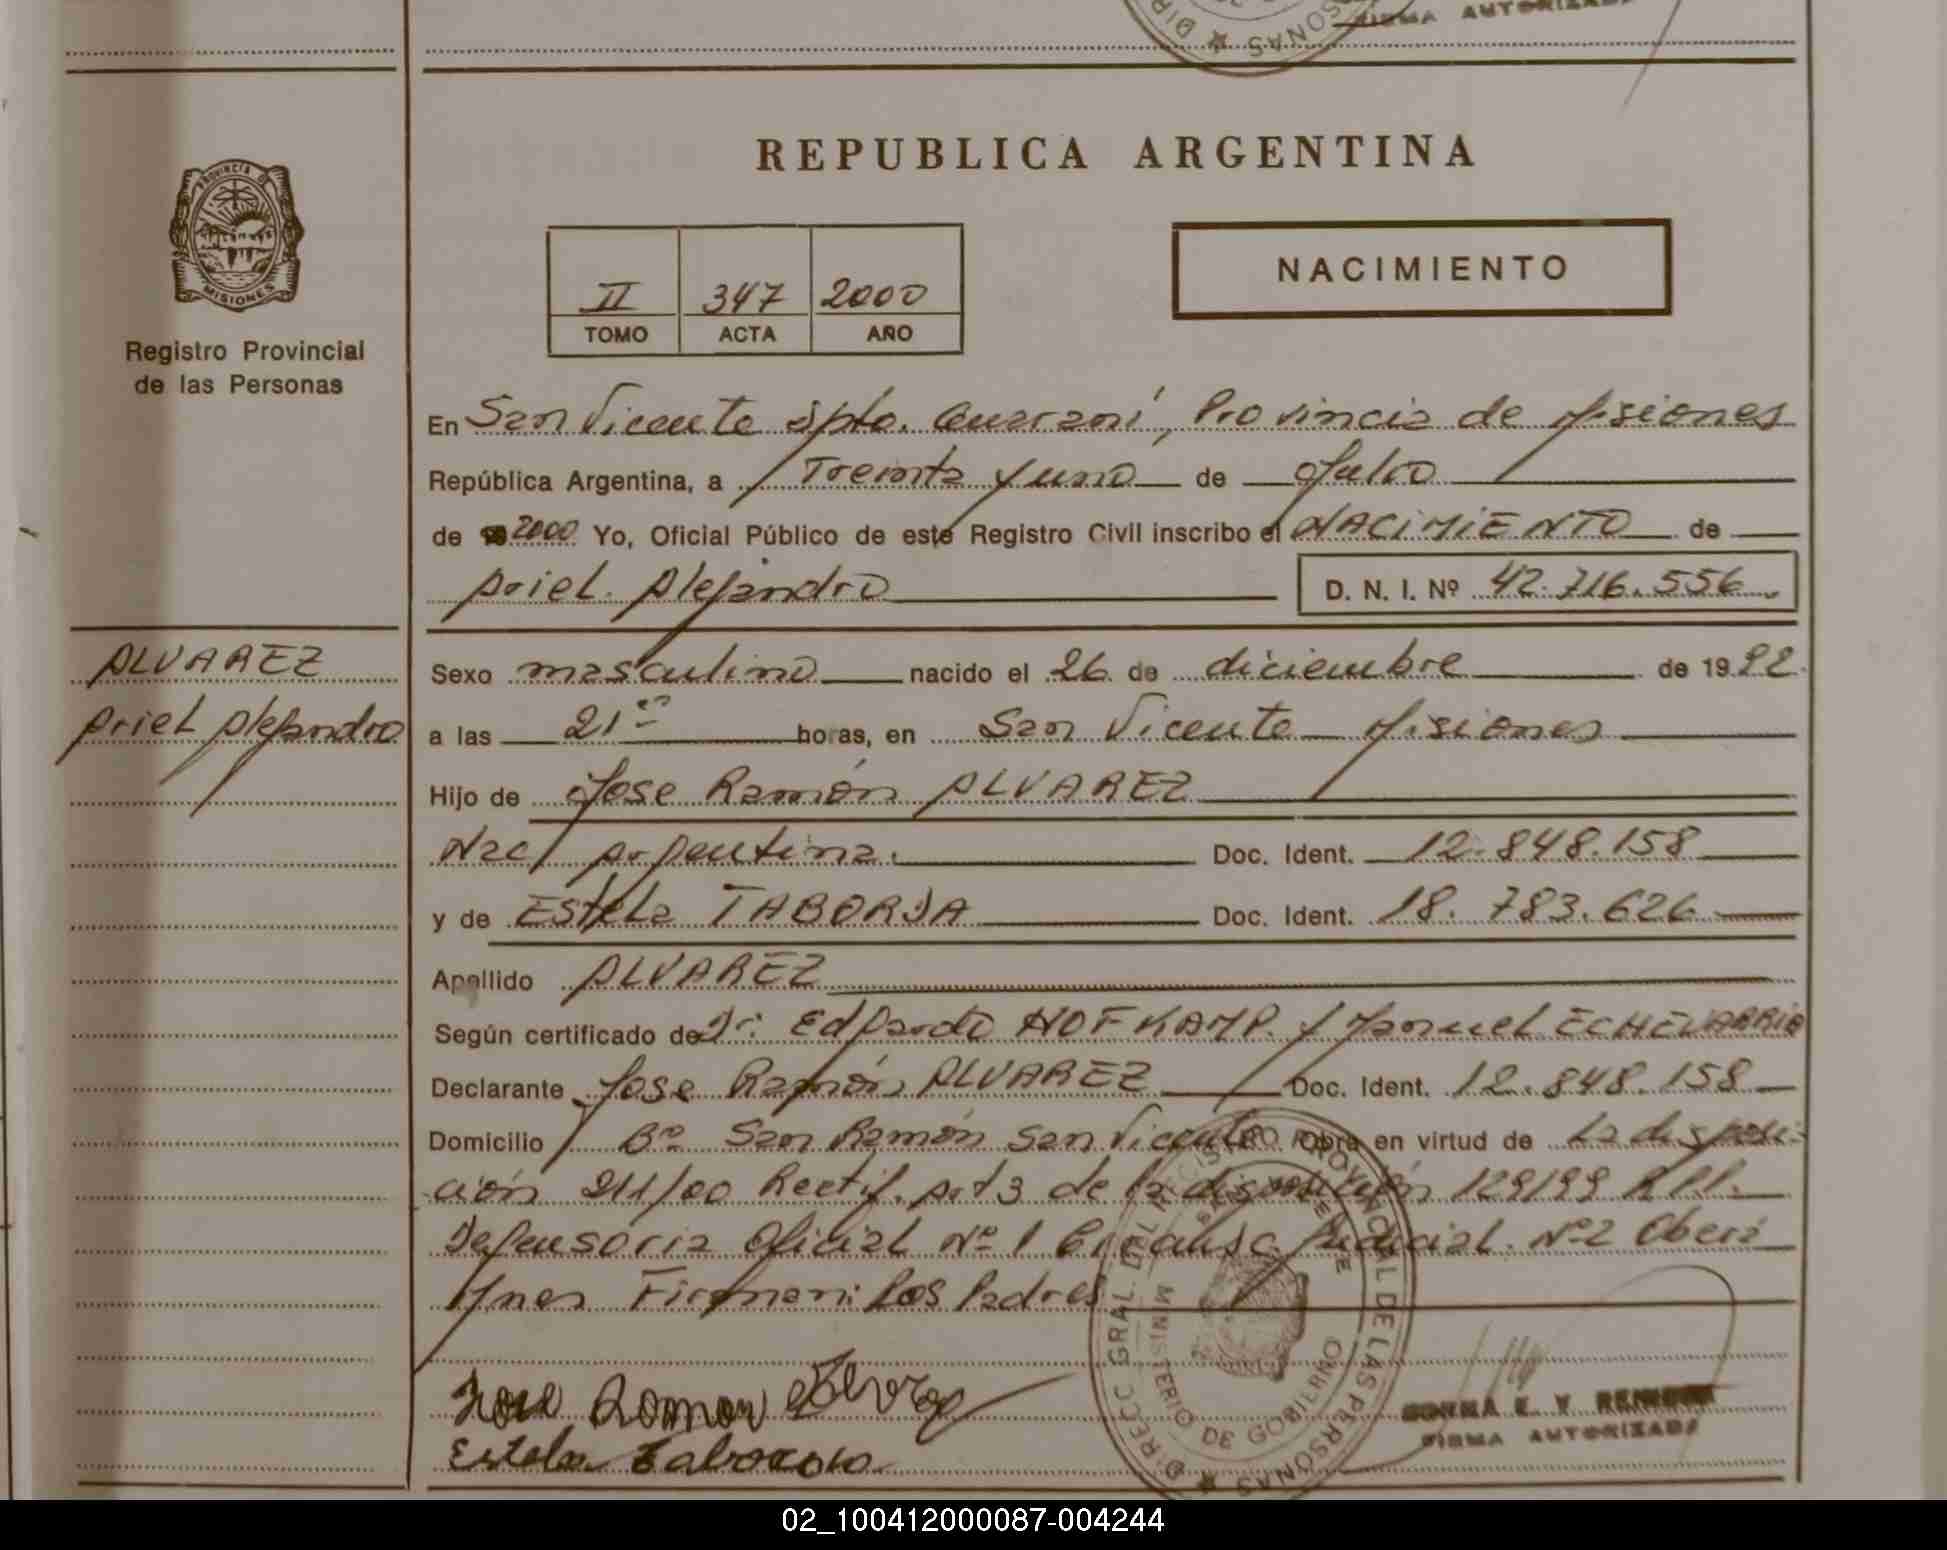 FIRMA AUTORIZADA
REPUBLICA ARGENTINA
PROVINCIA DE
MISIONES
Registro Provincial
de las Personas
II 347 2000
TOMO ACTA AÑO
NACIMIENTO
En San Vicente Dpto. Guaraní, Provincia de Misiones
República Argentina, a Treinta y uno de Julio
de 2000 Yo, Oficial Público de este Registro Civil inscribo el NACIMIENTO de
Ariel Alejandro D. N. I. Nº 42.716.556
ALVAREZ
Ariel Alejandro
Sexo masculino nacido el 26 de diciembre de 19
a las 21 horas, en San Vicente Misiones
Hijo de Jose Ramón ALVAREZ
Nac. Argentina. Doc. Ident. 12.848.158
y de Estela TABORDA Doc. Ident. 18.783.626
Apellido ALVAREZ
Según certificado de Dr. Edgardo HOFKAMP. y Manuel ECHEVARRIA
Declarante Jose Ramón ALVAREZ Doc. Ident. 12.848.158
Domicilio Bº San Ramón San Vicente Obra en virtud de La disposi-
ción 211/00 Rectif. Art 3 de la disposición 129/99 R.P.P.
Defensoria Oficial Nº 1 Circunsc. Judicial. Nº 2 Oberá
Mnes Firman: Los Padres
Jose Ramon Alvarez
Estela Taborda
DIRECC GRAL DEL REGISTRO PROVINCIAL DE LAS PERSONAS
MINISTERIO DE GOBIERNO
SAN VICENTE
FIRMA AUTORIZADA
02_100412000087-004244